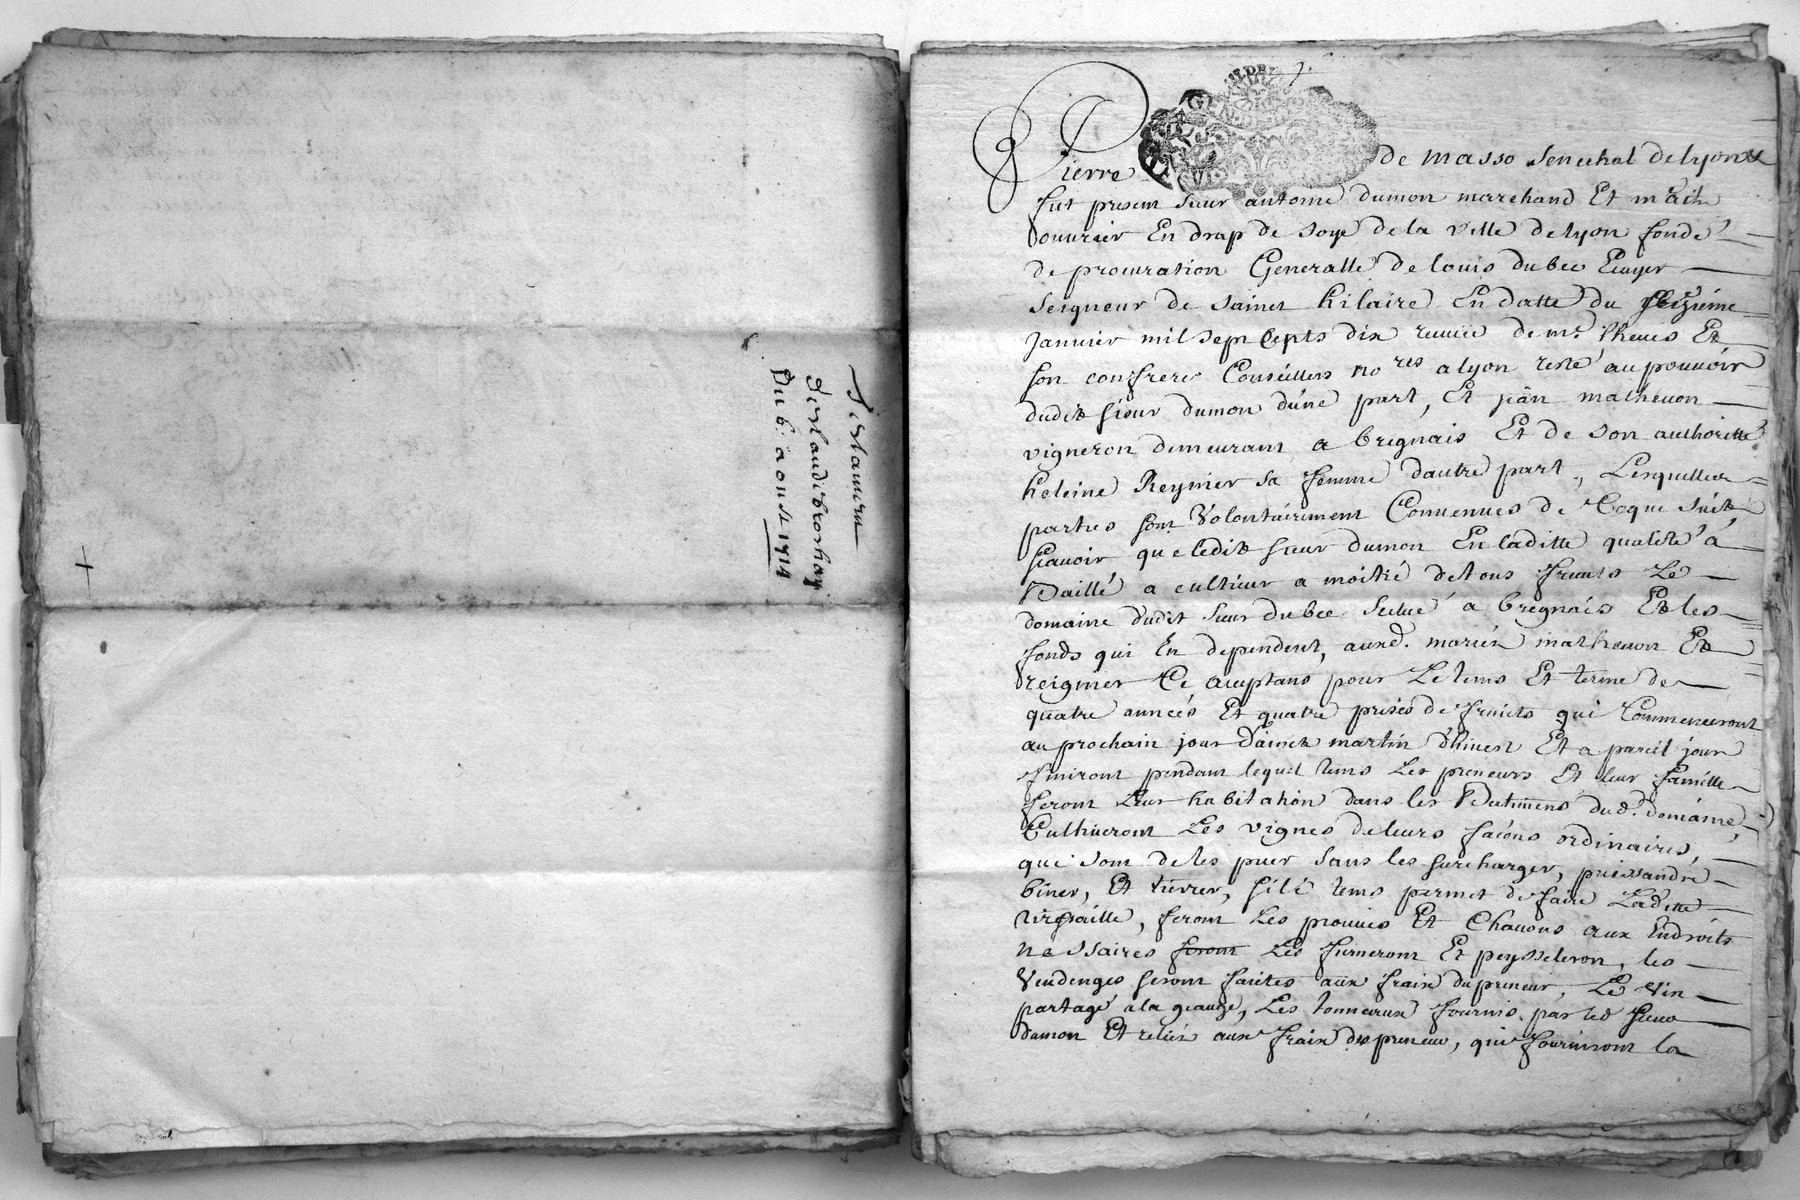 Testament
De
Du 6: aoust 1714
Pierre de masso senechal de lyon
fut present sieur antoine dumon marchand Et maitre
ouurier En drap de soye de la ville de lyon fondé
de procuration Generalle de louis dubec Ecuyer
seigneur de sainct hilaire En datte du
Januier mil sept cepts dix receüe de mr.
son confrere Conseillers nores a lyon resté au pouuoir
dudit sieur dumon dúne part, Et jean matheuon
vigneron demeurant a brignais Et de son authorité
heleine Reynier sa femme dautre part, Lesquelles
parties sont Volontairement Conuenues de Ceque suit
scauoir que ledit sieur dumon En laditte qualité á
Baillé a cultiuer a moitié de tous fruits Le
domaine dudit sieur dubec scitué a brignais Et les
fonds qui En dependent, auxd. mariés matheuon Et
reignier Ce aceptans pour Le tems Et terme de
quatre années Et quatre prises de fruits qui Commenceront
au prochain jour saint martin dhiuert Et a pareil jour
finiront pendant lequel tems Les preneurs Et leur famille
feront Leur habitation dans les Batimens dud. domaine,
Cultiueront Les vignes de leurs façons ordinaires,
qui sont de les puer sans les surcharger,
biner, Et tiercer, si le tems permet de faire Laditte
feront Les prouuies Et Chauons aux Endroits
nessaires feront Les fumeront Et peysseleron, les
Vendenges seront faites aux fraix du preneur, Le vin
partagé a la Les tonneaux fournis par led sieur
dumon Et reliés aux fraix des preneur, qui fourniront la